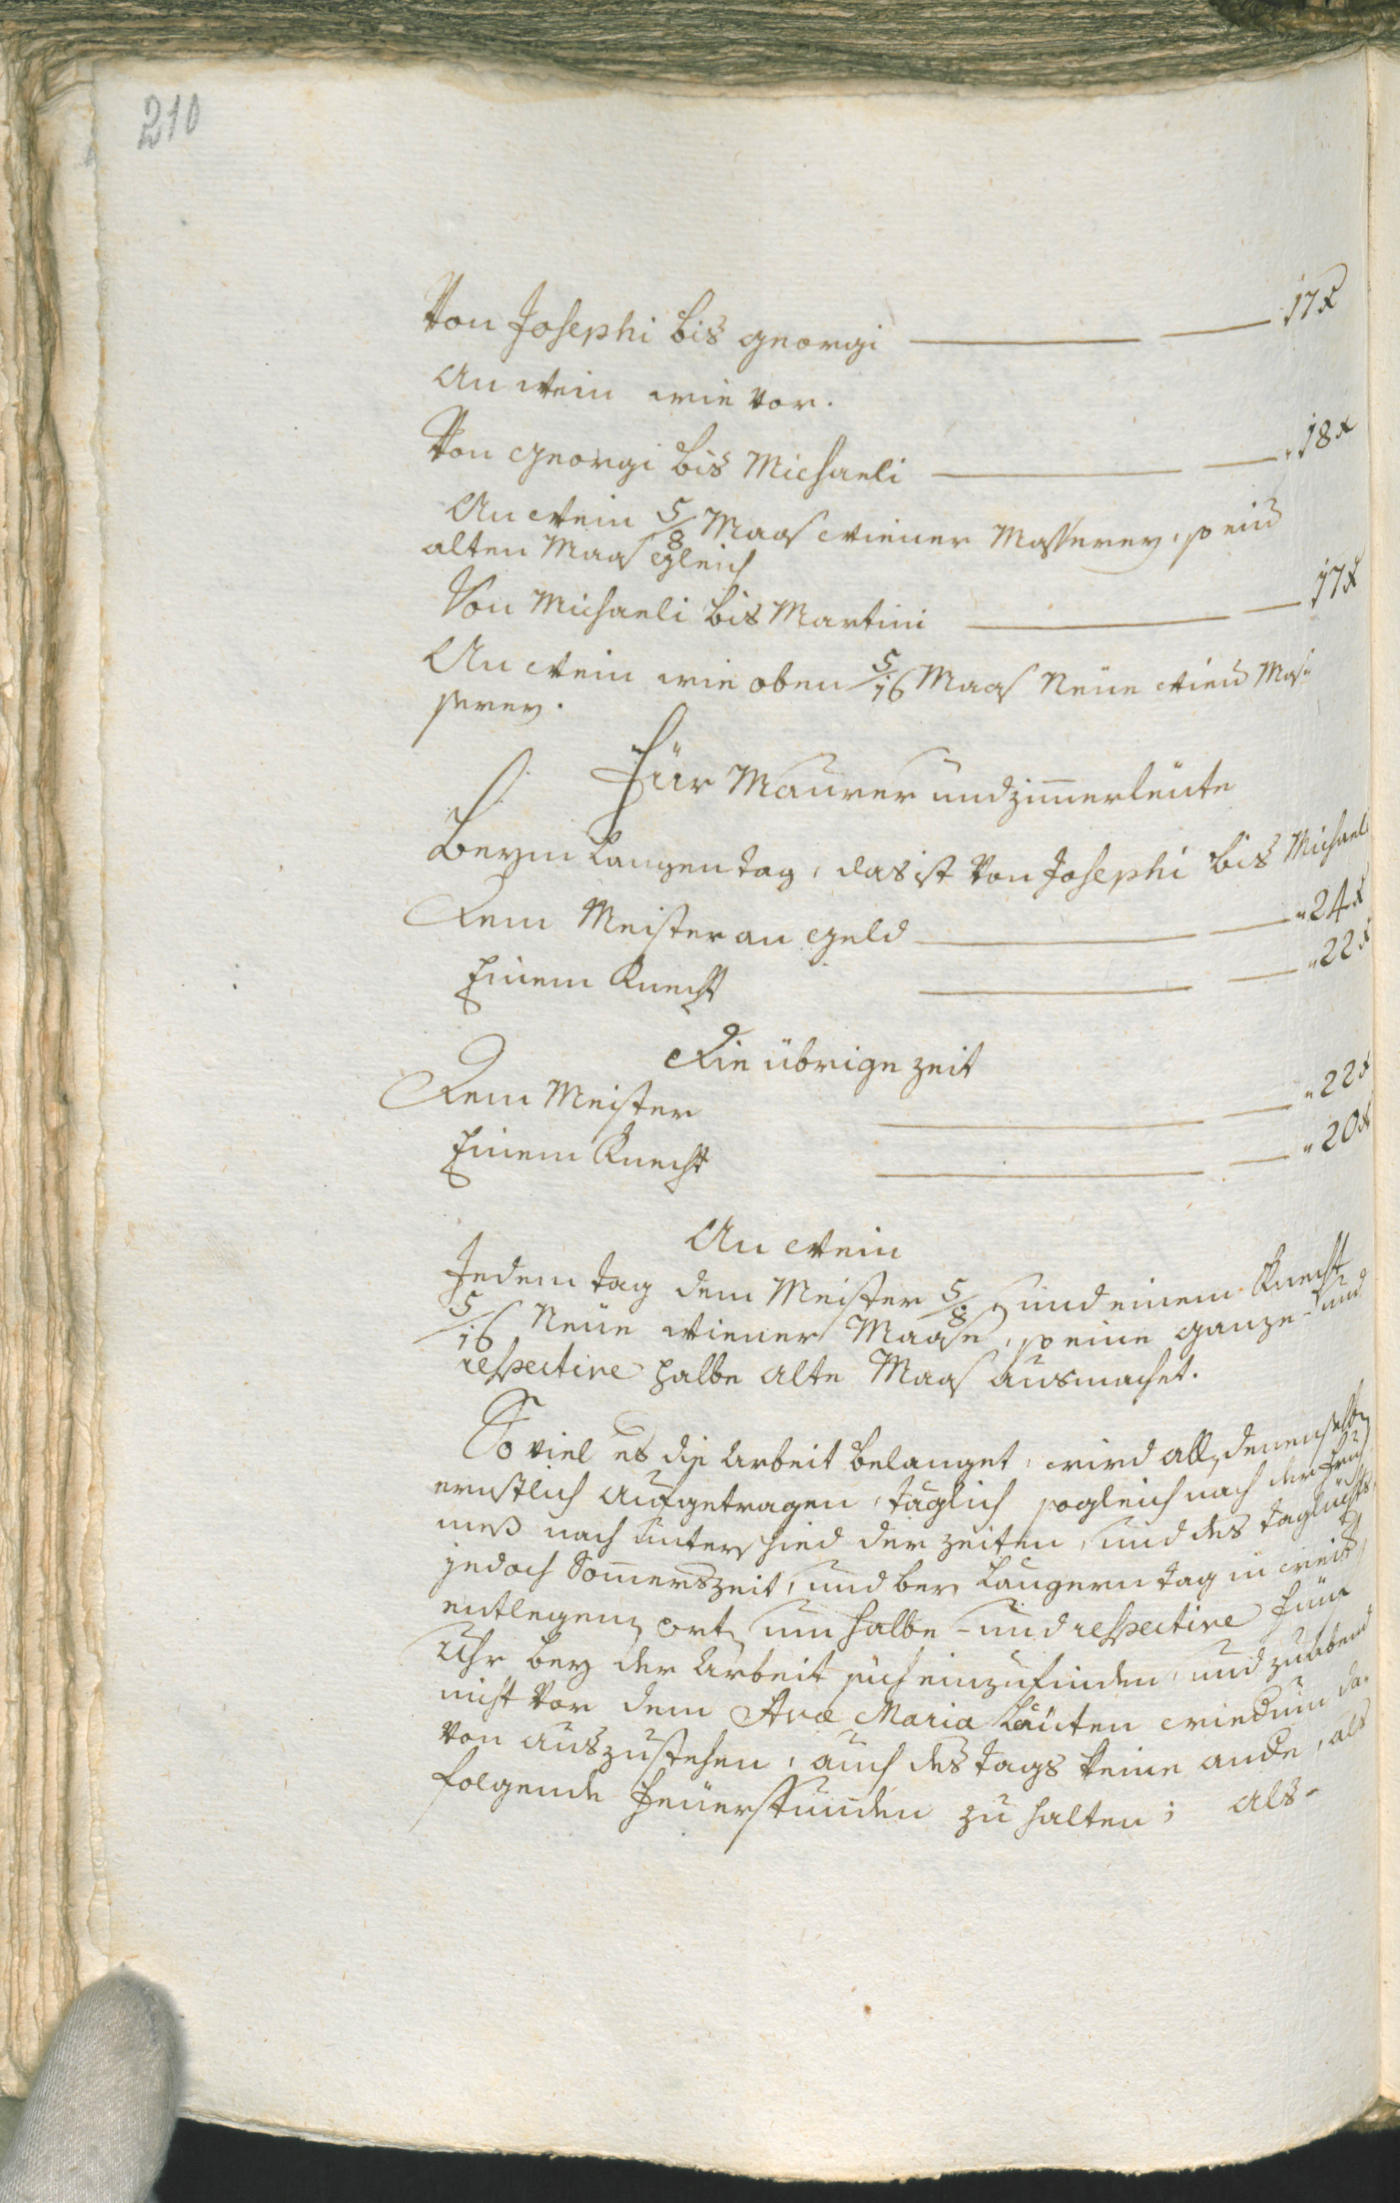 210
Von Josephi bis georgi — — 17 x
An Wein wie vor.
Von Georgi bis Michaeli — — " 18 x
An Wein 5/8 Maas Wiener Masserey, so eine
alten Maas gleich
Von Michaeli bis Martini — — 17 x
An Wein wie oben 5/16 Maas Neüe Wien Mas=
serey.
Für Maurer und zimerleüte
Beym Langen tag, das ist Von Josephi bis Michaeli
Dem Meister an Geld — — " 24 x
Einem Knecht — — " 22 x
Die übrige zeit
Dem Meister — — " 22 x
Einem Knecht — — " 20 x
An Wein
Jedem tag dem Meister 5/8 und einem Knecht
5/16 Neüe Wiener Maase, so eine ganze- und
respective halbe alte Maas ausmachet.
So viel es die Arbeit belanget, wird all denenselben
ernstlich aufgetragen, täglich sogleich nach der Früh
meß nach unterschied der zeiten, und des taglichts,
jedoch Somerszeit, und bey Langern tag in weit
entlegenen orten um halbe- und respective Fünf
Uhr bey der Arbeit sich einzufinden, und zu abend
nicht Vor dem Ave Maria Läuten wiedum da-
von auszustehen, auch des tags keine ande, als
folgende Feüerstunden zu halten; als-